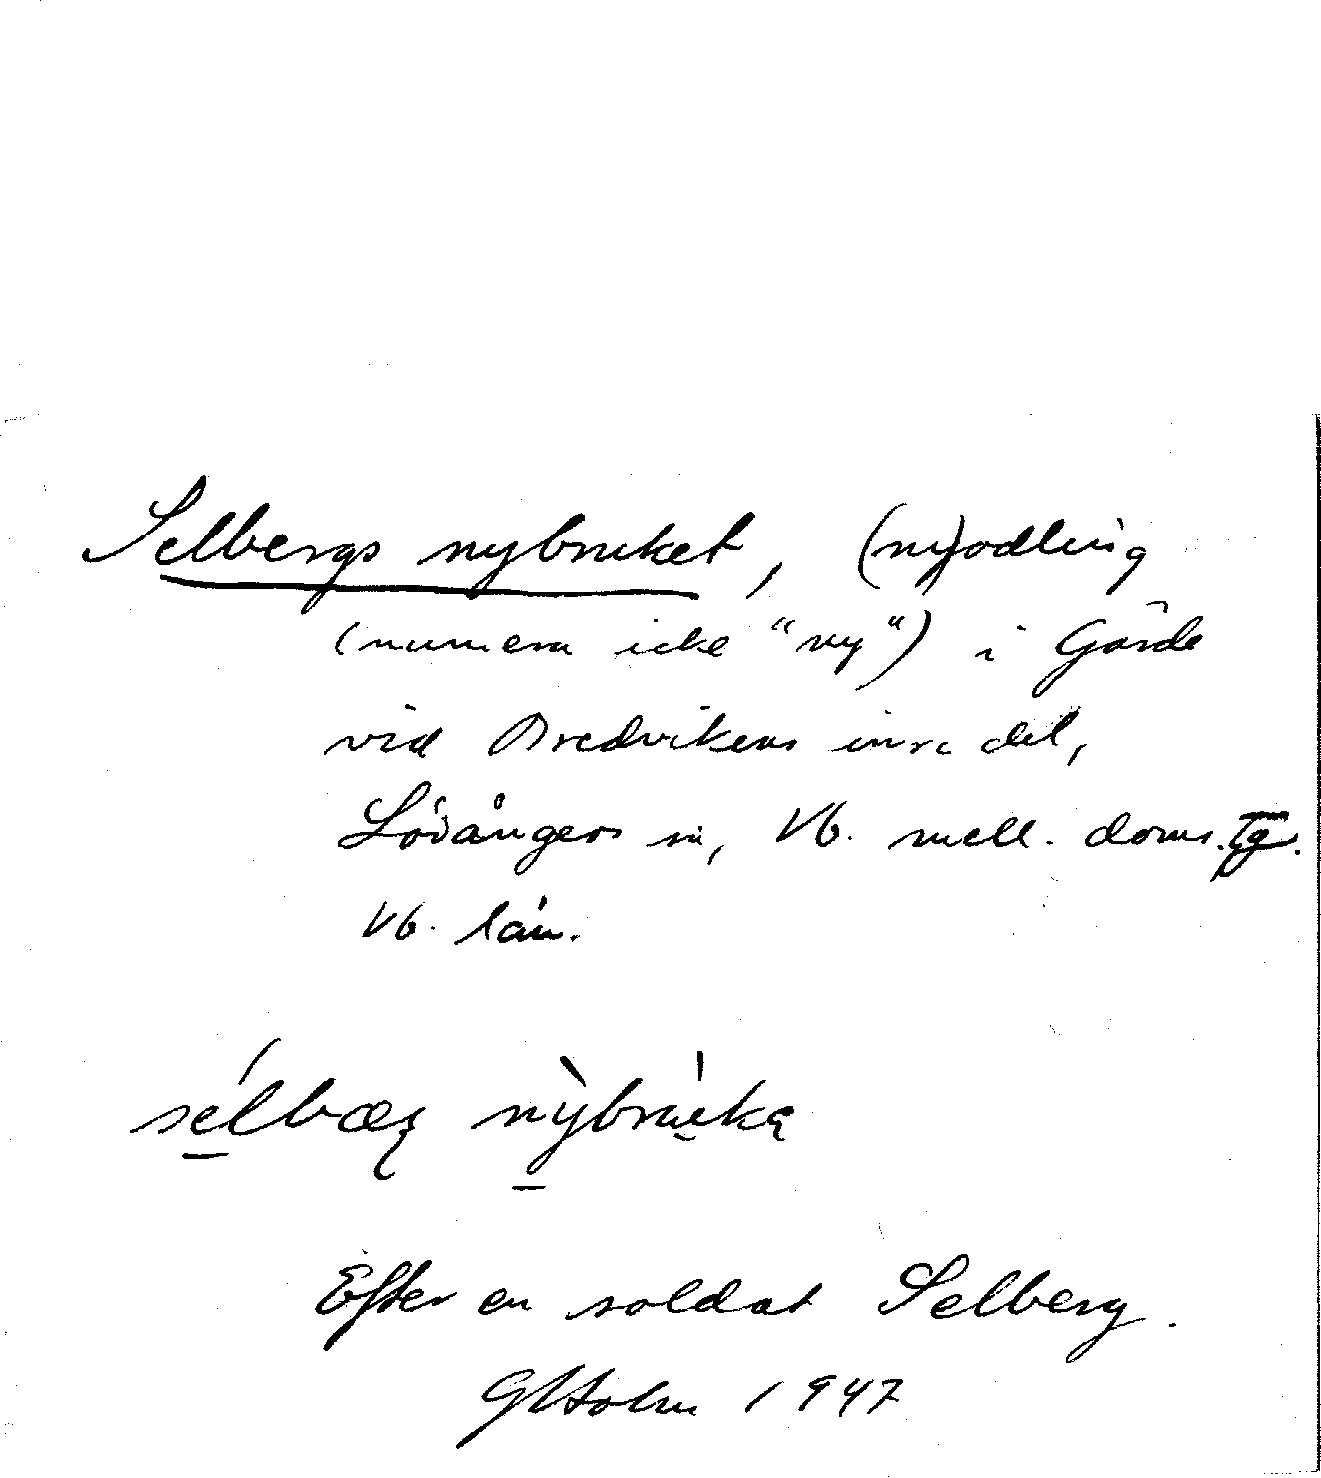 Selbergs nybruket, (ny)odling
(numera icke "ny") i Gärde
vid Bredvikens inre del,
Lövångers sn, Vb. mell. doms. Tg.
Vb. län.
sélbæȥ nỳbrùką
Efter en soldat Selberg.
G Holm 1947